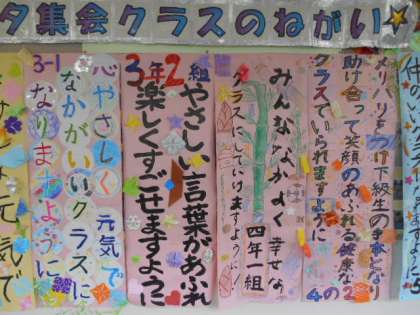 夕集会クラスのねがい
メリハリをつけ下級生の手本となり
助け合って笑顔のあふれる健康な
クラスでいられますように
4の2
みんななかよく幸せな
クラスにしていけますように!
四年一組
3年2組
やさしい言葉があふれ
楽しくすごせますように
3-1
心やさしく元気で
なかがいいクラスに
なりますように
元気で